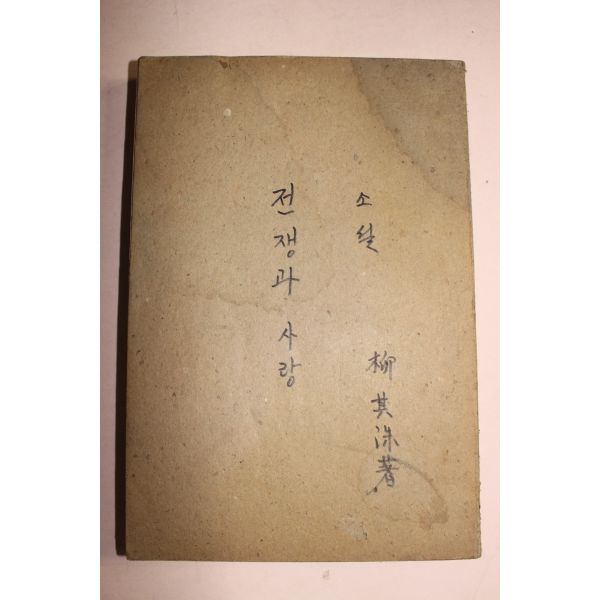 소설
柳其洙著
전쟁과 사랑